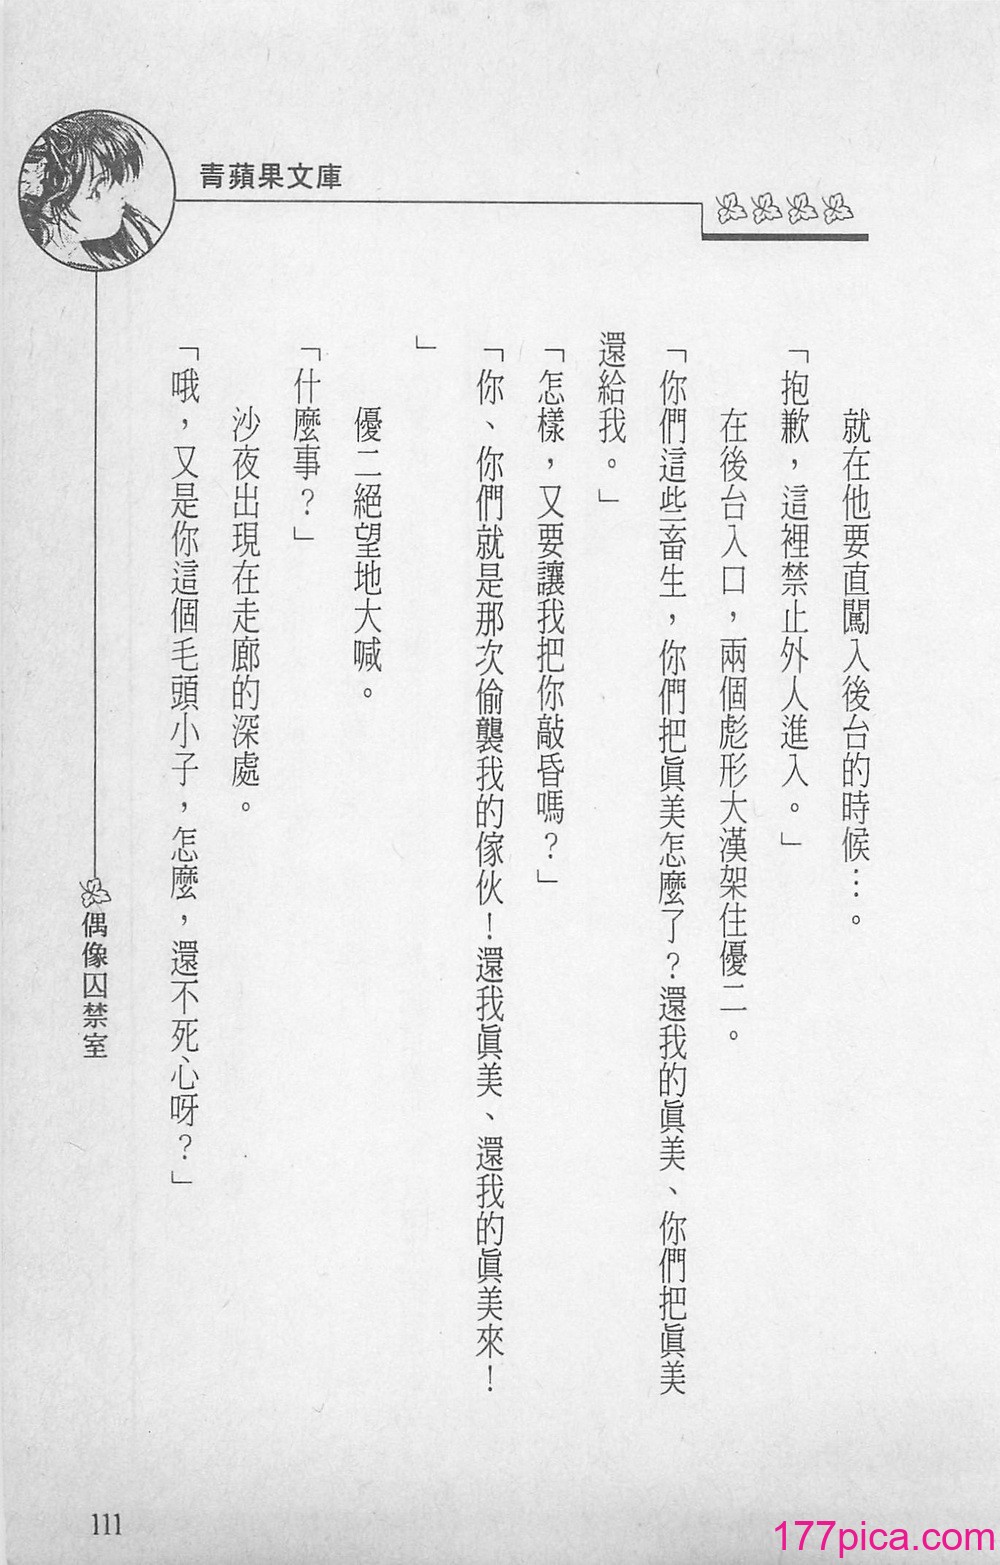 青蘋果文庫
就在他要直闖入後台的時候…。
「抱歉，這裡禁止外人進入。」
在後台入口，兩個彪形大漢架住優二。
「你們這些畜生，你們把眞美怎麼了？還我的眞美、你們把眞美
還給我。」
「怎樣，又要讓我把你敲昏嗎？」
「你、你們就是那次偷襲我的傢伙！還我眞美、還我的眞美來！
」
優二絕望地大喊。
「什麼事？」
沙夜出現在走廊的深處。
「哦，又是你這個毛頭小子，怎麼，還不死心呀？」
偶像囚禁室
111
177pica.com